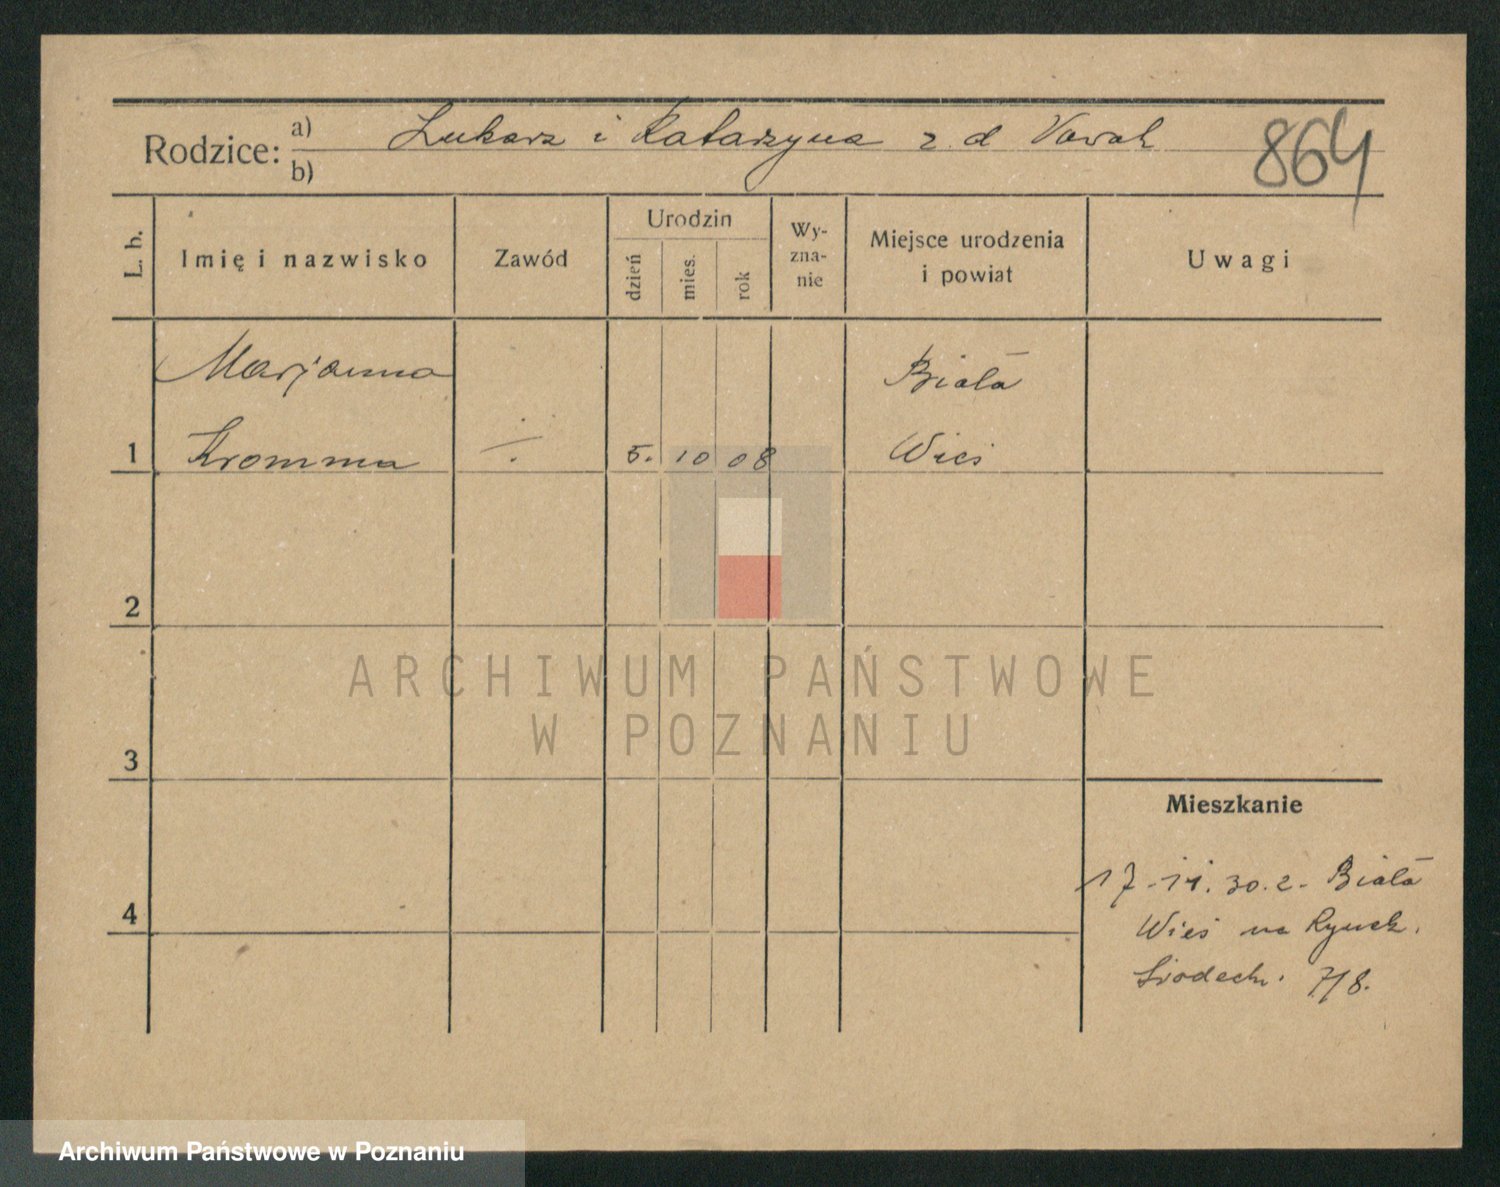 Rodzice: a) Łukasz i Katarzyna z d
b)
864
L. b.
Imię i nazwisko
Zawód
Urodzin
dzień
mies.
rok
Wy-
zna-
nie
Miejsce urodzenia
i powiat
Uwagi
Marjanna
Biała
1 Kromma ÷ 5. 10 08 Wieś
2
ARCHIWUM PAŃSTWOWE
W POZNANIU
3
Mieszkanie
4
17-11.30. z. Biała
Wieś na Rynek.
Śródech. 7/8.
Archiwum Państwowe w Poznaniu